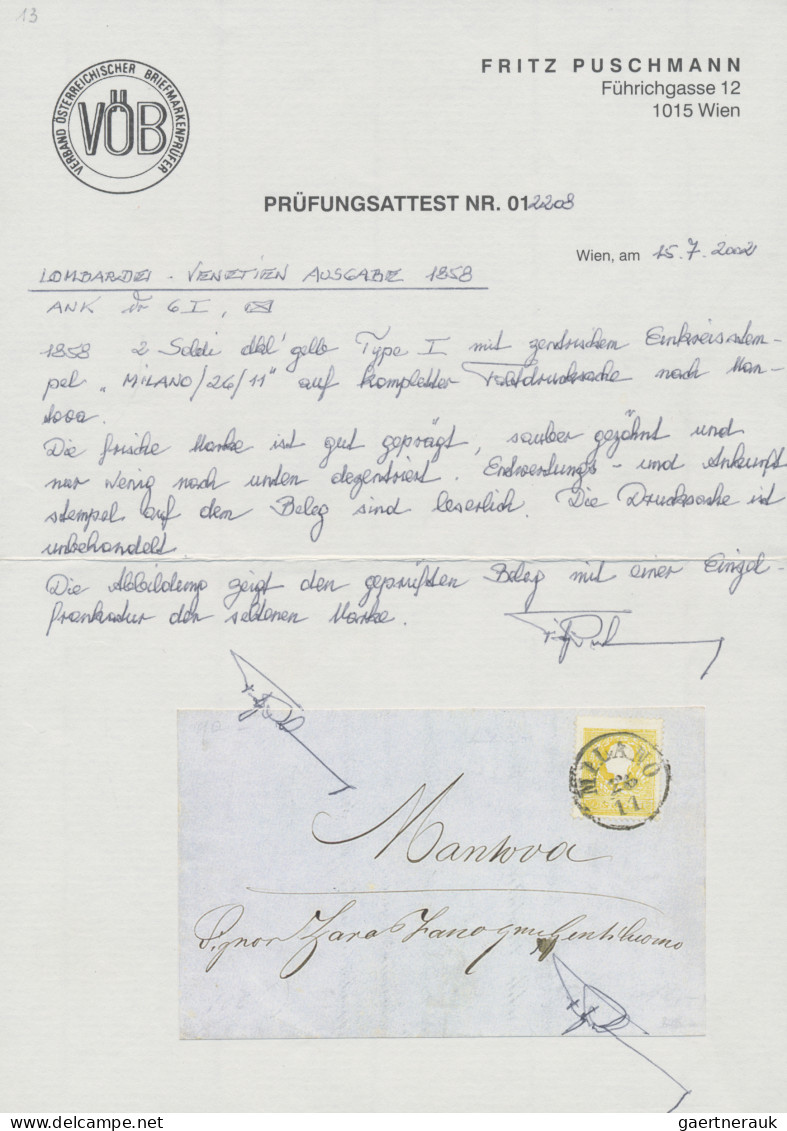 13
VERBAND ÖSTERREICHISCHER BRIEFMARKENPRÜFER
VÖB
FRITZ PUSCHMANN
Führichgasse 12
1015 Wien
PRÜFUNGSATTEST NR. 012208
Wien, am 15.7.2002
LOMBARDEI - VENETIEN AUSGABE 1858
ANK Nr 6 I,
1858 2 Soldi dkl'gelb Type I mit zentrischem Einkreisstem-
pel "MILANO/26/11" auf kompletter Faltdrucksache nach Man-
tova.
Die frische Marke ist gut geprägt, sauber gezähnt und
nur wenig nach unten dezentriert. Entwertungs- und Ankunft
stempel auf dem Beleg sind leserlich. Die Drucksache ist
unbehandelt.
Die Abbildung zeigt den geprüften Beleg mit einer Einzel-
frankatur der seltenen Marke.
MILANO
26
11
Mantova
Signor Zara Gentiluomo
gaertnerauk